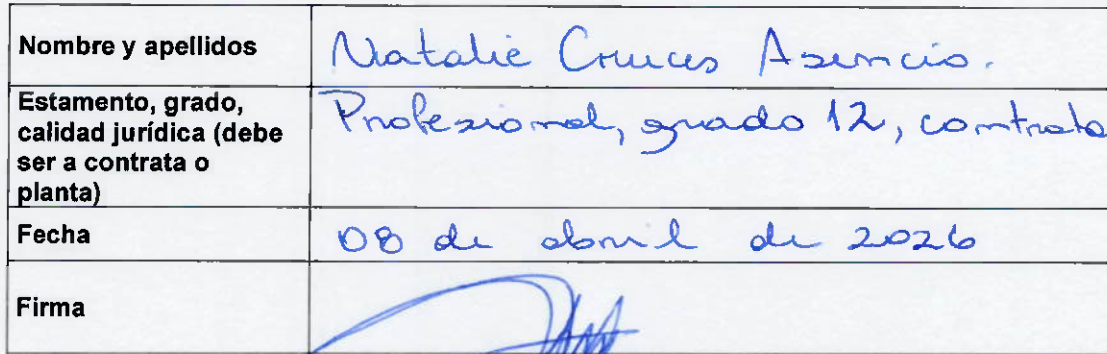 Nombre y apellidos
Natalie Cruces Asencio.
Estamento, grado,
calidad jurídica (debe
ser a contrata o
planta)
Profesional, grado 12, contrata
Fecha
08 de abril de 2026
Firma